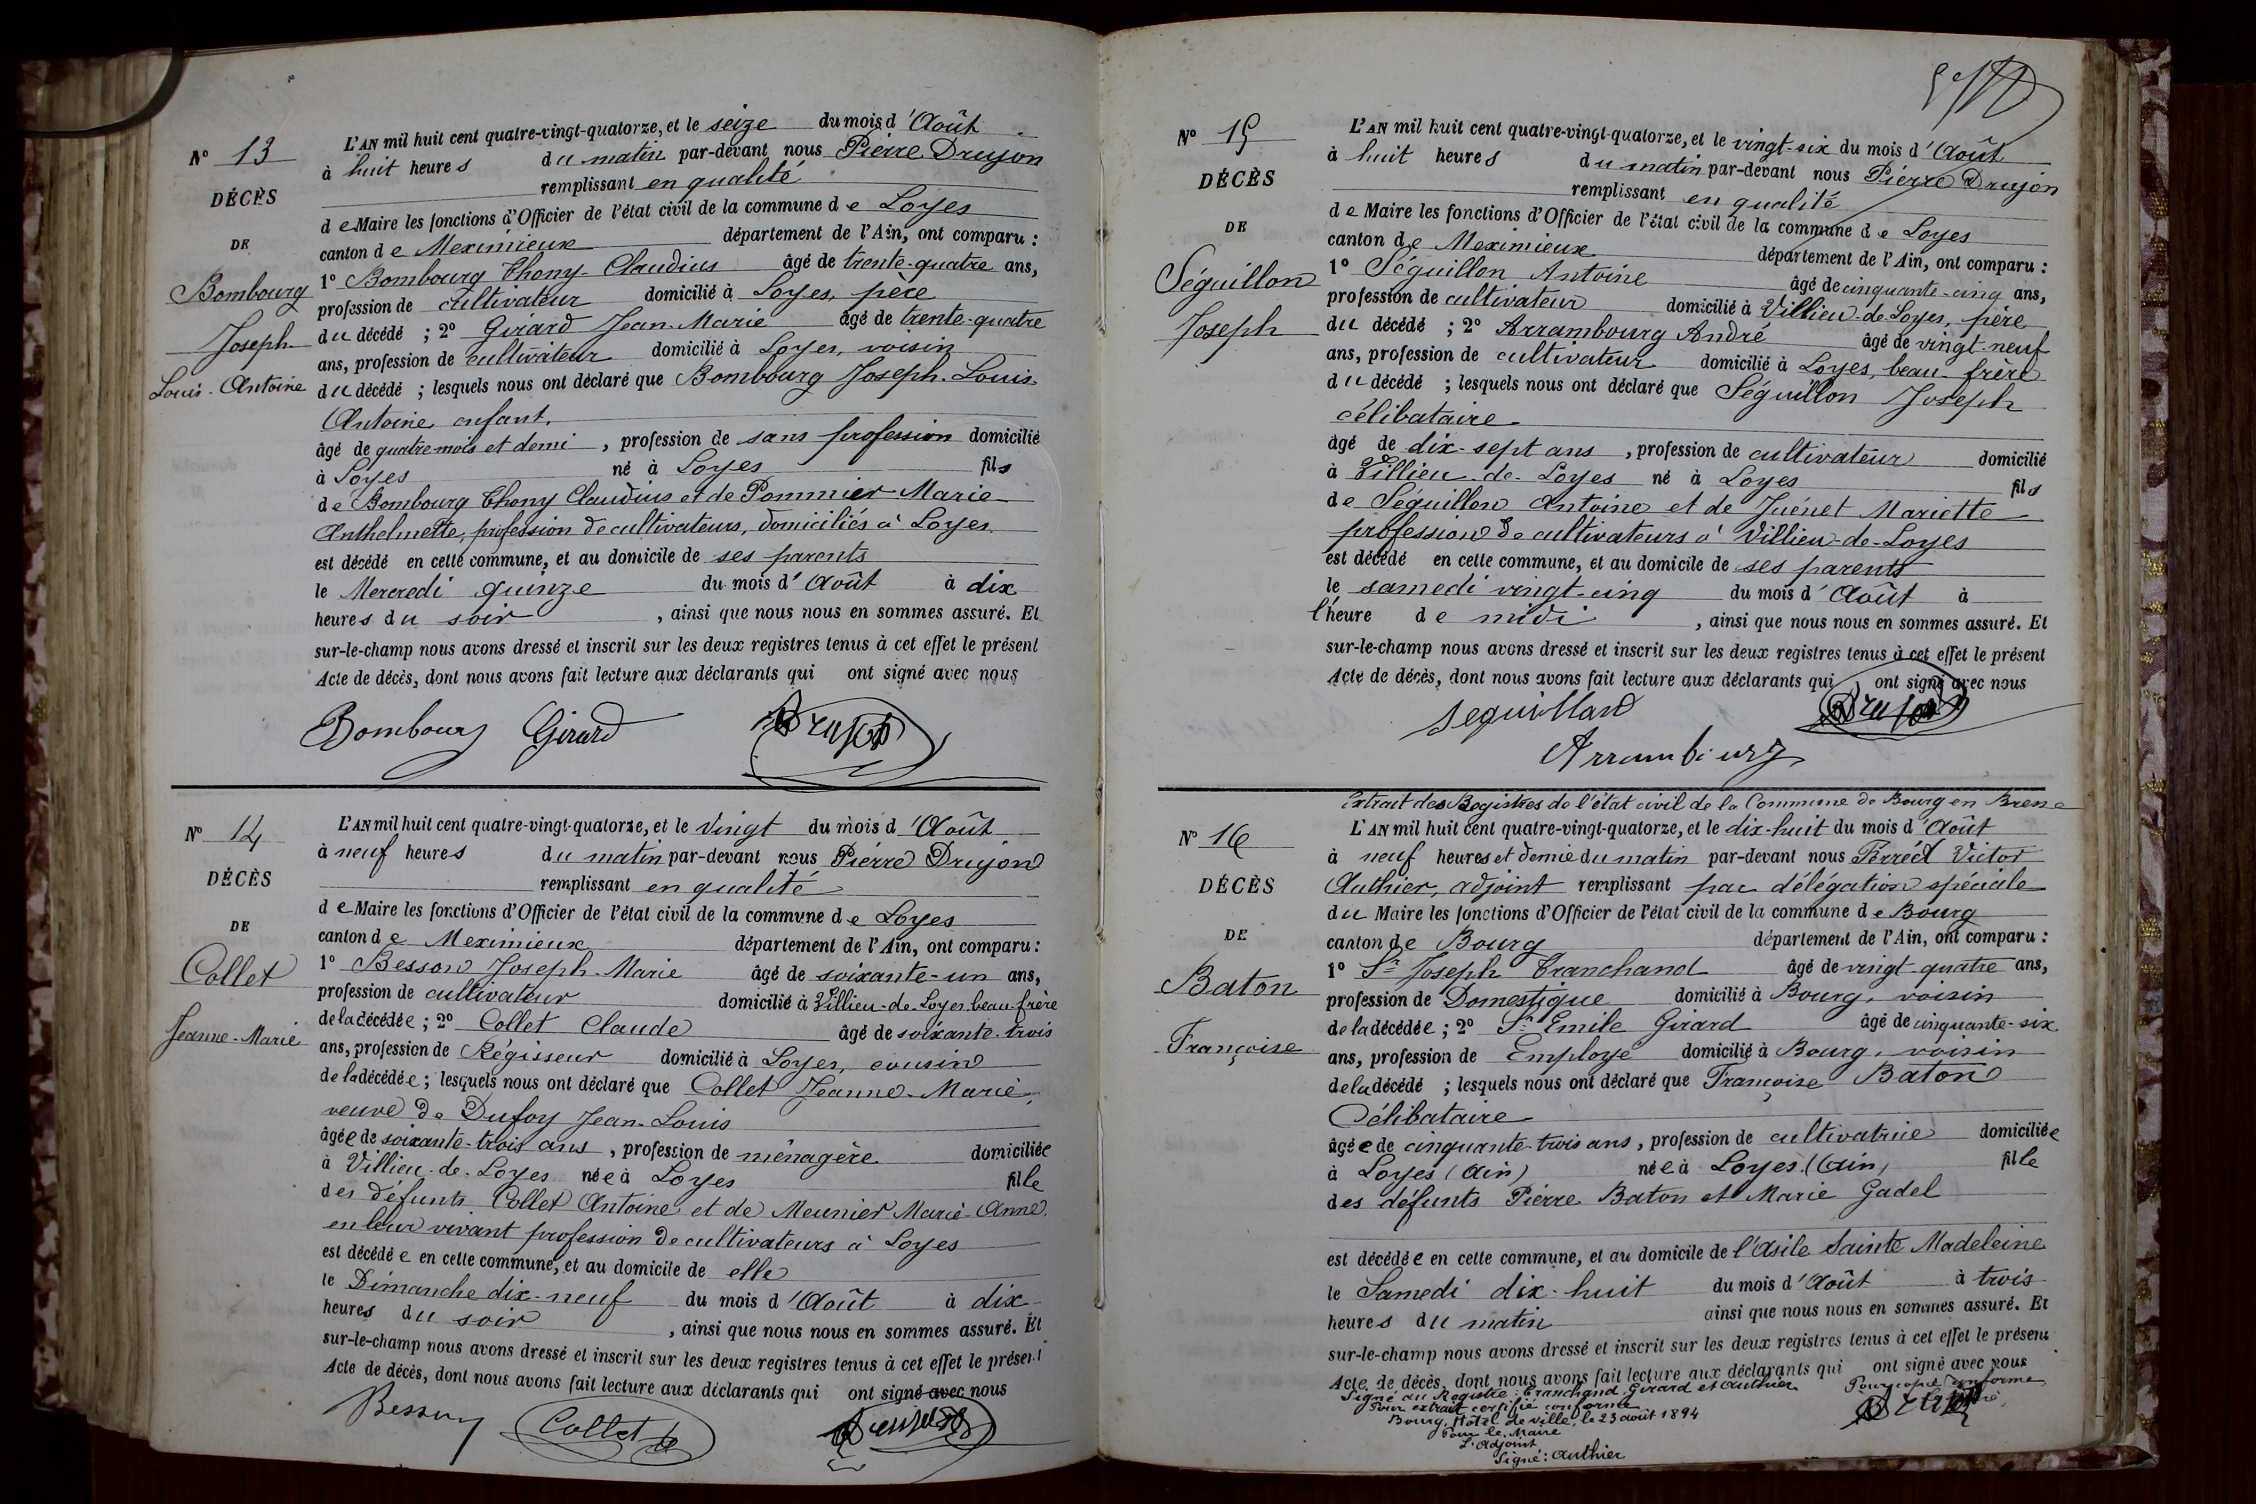 N° 13
DÉCÈS
DE
Bombourg
Joseph
Louis-Antoine
L'AN mil huit cent quatre-vingt-quatorze, et le seize du mois d'Août
à huit heures du matin par-devant nous Pierre Drujon
remplissant en qualité
de Maire les fonctions d'Officier de l'état civil de la commune de Loyes
canton de Meximieux département de l'Ain, ont comparu :
1° Bombourg Thony Claudius âgé de trente-quatre ans,
profession de cultivateur domicilié à Loyes, père
du décédé ; 2° Girard Jean-Marie âgé de trente-quatre
ans, profession de cultivateur domicilié à Loyes, voisin
du décédé ; lesquels nous ont déclaré que Bombourg Joseph-Louis
Antoine enfant.
âgé de quatre mois et demi , profession de sans profession domicilié
à Loyes né à Loyes fils
de Bombourg Thony Claudius et de Pommier Marie
Anthelmette, profession de cultivateurs, domiciliés à Loyes.
est décédé en cette commune, et au domicile de ses parents
le Mercredi quinze du mois d'Août à dix
heures du soir , ainsi que nous nous en sommes assuré. Et
sur-le-champ nous avons dressé et inscrit sur les deux registres tenus à cet effet le présent
Acte de décès, dont nous avons fait lecture aux déclarants qui ont signé avec nous
Bombourg Girard Drujon
N° 14
DÉCÈS
DE
Collet
Jeanne-Marie
L'AN mil huit cent quatre-vingt-quatorze, et le vingt du mois d'Août
à neuf heures du matin par-devant nous Pierre Drujon
remplissant en qualité
de Maire les fonctions d'Officier de l'état civil de la commune de Loyes
canton de Meximieux département de l'Ain, ont comparu :
1° Besson Joseph-Marie âgé de soixante-un ans,
profession de cultivateur domicilié à Villieu-de-Loyes, beau frère
de la décédée ; 2° Collet Claude âgé de soixante-trois
ans, profession de Régisseur domicilié à Loyes, cousin
de la décédée ; lesquels nous ont déclaré que Collet Jeanne-Marie,
veuve de Dufoy Jean-Louis
âgée de soixante-trois ans , profession de ménagère domiciliée
à Villieu-de-Loyes née à Loyes fille
des défunts Collet Antoine et de Meunier Marie-Anne.
en leur vivant profession de cultivateurs à Loyes
est décédée en cette commune, et au domicile de elle
le Dimanche dix-neuf du mois d'Août à dix
heures du soir , ainsi que nous nous en sommes assuré. Et
sur-le-champ nous avons dressé et inscrit sur les deux registres tenus à cet effet le présent
Acte de décès, dont nous avons fait lecture aux déclarants qui ont signé avec nous
Besson Collet Drujon
N° 15
DÉCÈS
DE
Séguillon
Joseph
L'AN mil huit cent quatre-vingt-quatorze, et le vingt-six du mois d'Août
à huit heures du matin par-devant nous Pierre Drujon
remplissant en qualité
de Maire les fonctions d'Officier de l'état civil de la commune de Loyes
canton de Meximieux département de l'Ain, ont comparu :
1° Séguillon Antoine âgé de cinquante-cinq ans,
profession de cultivateur domicilié à Villieu-de-Loyes, père
du décédé ; 2° Arrambourg André âgé de vingt-neuf
ans, profession de cultivateur domicilié à Loyes, beau frère
du décédé ; lesquels nous ont déclaré que Séguillon Joseph
célibataire
âgé de dix-sept ans , profession de cultivateur domicilié
à Villieu-de-Loyes né à Loyes fils
de Séguillon Antoine et de Juénet Mariette
profession de cultivateurs à Villieu-de-Loyes
est décédé en cette commune, et au domicile de ses parents
le samedi vingt-cinq du mois d'Août à
l'heure de midi , ainsi que nous nous en sommes assuré. Et
sur-le-champ nous avons dressé et inscrit sur les deux registres tenus à cet effet le présent
Acte de décès, dont nous avons fait lecture aux déclarants qui ont signé avec nous
Seguillard Drujon
Arrambourg
Extrait des Registres de l'état civil de la Commune de Bourg en Bresse
N° 16
DÉCÈS
DE
Baton
Françoise
L'AN mil huit cent quatre-vingt-quatorze, et le dix-huit du mois d'Août
à neuf heures et demie du matin par-devant nous Perréct Victor
Authier, adjoint remplissant par délégation spéciale
du Maire les fonctions d'Officier de l'état civil de la commune de Bourg
canton de Bourg département de l'Ain, ont comparu :
1° Sr Joseph Tranchand âgé de vingt-quatre ans,
profession de Domestique domicilié à Bourg, voisin
de la décédée ; 2° Sr Emile Girard âgé de cinquante-six
ans, profession de Employé domicilié à Bourg, voisin
de la décédé ; lesquels nous ont déclaré que Françoise Baton
Célibataire
âgée de cinquante-trois ans , profession de cultivatrice domiciliée
à Loyes (Ain) née à Loyes (Ain) fille
des défunts Pierre Baton et Marie Gadel
est décédée en cette commune, et au domicile de l'Asile Sainte Madeleine
le Samedi dix-huit du mois d'Août à trois
heures du matin ainsi que nous nous en sommes assuré. Et
sur-le-champ nous avons dressé et inscrit sur les deux registres tenus à cet effet le présent
Acte de décès, dont nous avons fait lecture aux déclarants qui ont signé avec nous
Signé au Registre : Tranchand, Girard et Authier. Pour copie conforme
Pour extrait certifié conforme
Bourg, Hôtel de ville, le 23 août 1894
Pour le Maire
L'Adjoint
Signé : Authier
Drujon